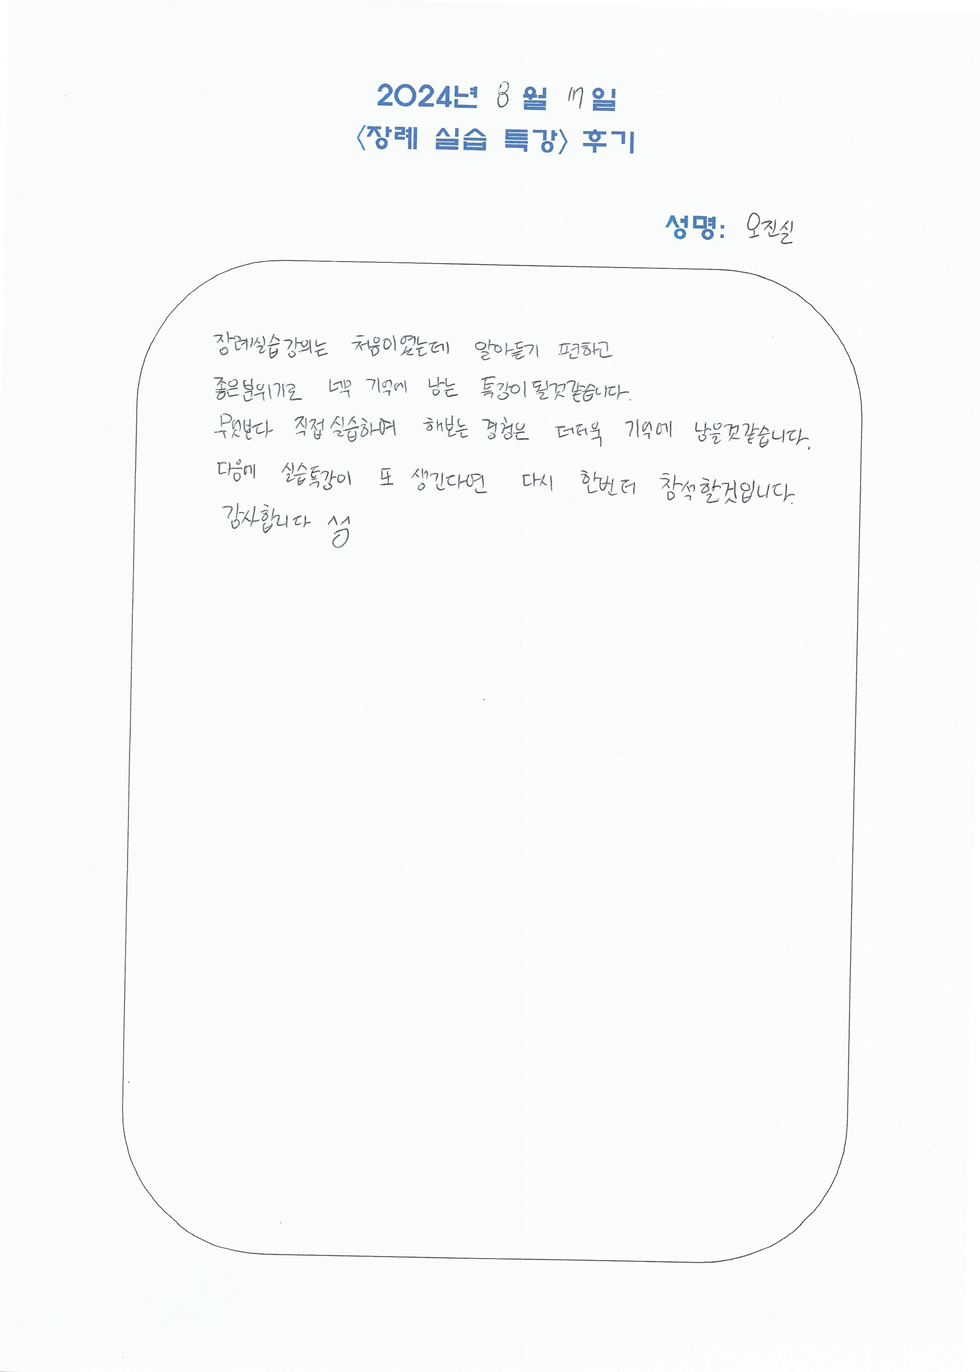 2024년 8월 17일
<장례 실습 특강> 후기
성명: 오진실
장례실습강의는 처음이였는데 알아듣기 편하고
좋은분위기로 너무 기억에 남는 특강이될것같습니다.
무엇보다 직접실습하여 해보는 경험은 더더욱 기억에 남을것같습니다.
다음에 실습특강이 또 생긴다면 다시 한번더 참석할것입니다.
감사합니다